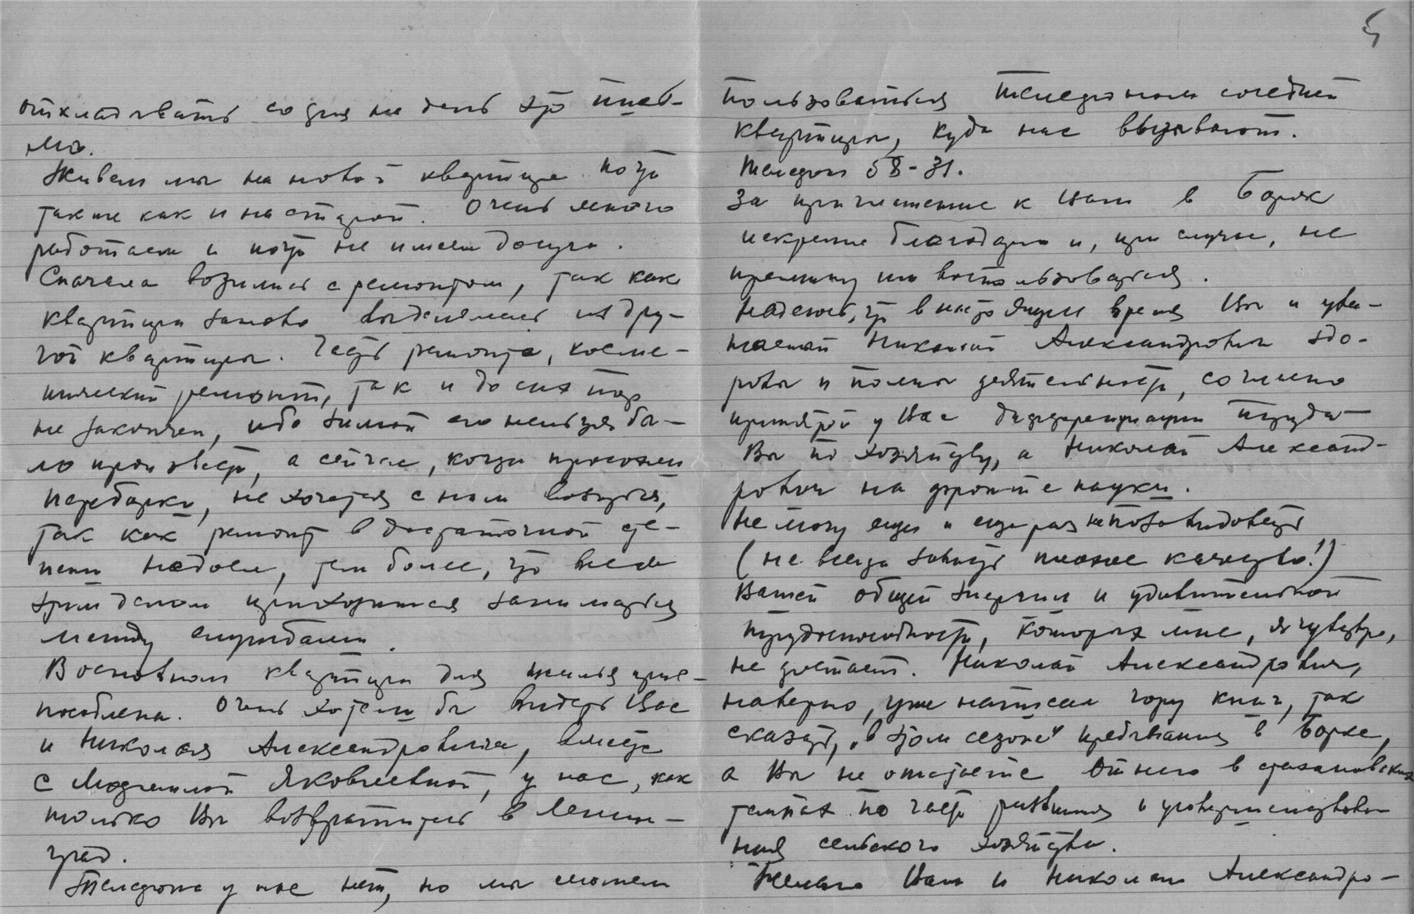 5
откладывать со дня на день это пись-
мо.
Живем мы на новой квартире почти
так же как и на старой. Очень много
работаем и почти не имеем досуга.
Сначала возились с ремонтом, так как
квартира заново выделялась из дру-
гой квартиры. Часть ремонта, косме-
тический ремонт, так и до сих пор
не закончен, ибо зимой его нельзя бы-
ло произвести, а сейчас, когда просохли
перегородки, не хочется с ним возиться,
так как ремонт в достаточной сте-
пени надоел, тем более, что всем
этим делом приходится заниматься
между службами.
В основном квартира для жилья прис-
пособлена. Очень хотели бы видеть Вас
и Николая Александровича, вместе
с Людмилой Яковлевной, у нас, как
только Вы возвратитесь в Ленин-
град.
Телефона у нас нет, но мы можем
пользоваться телефоном соседней
квартиры, куда нас вызывают.
Телефон 58-31.
За приглашение к Вам в Борок
искренне благодарю и, при случае, не
премину им воспользоваться.
Надеюсь, что в настоящее время Вы и ува-
жаемый Николай Александрович здо-
ровы и полны деятельности, согласно
принятой у Вас дифференциации труда
Вы по хозяйству, а Николай Александ-
рович на фронте науки.
Не могу еще и еще раз не позавидовать
(не всегда зависть плохое качество!)
Вашей общей энергии и удивительной
трудоспособности, которых мне, я чувствую,
не достает. Николай Александрович,
наверно, уже написал гору книг, так
сказать, "в этом сезоне" пребывания в Борке,
а Вы не отстаете от него в стахановских
темпах по части развития и усовершенствова-
ния сельского хозяйства.
Желаю Вам и Николаю Александро-